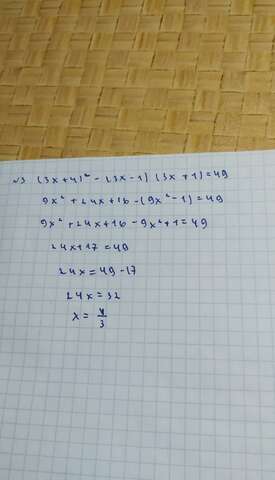 №3 (3x+4)² - (3x-1) (3x+1)=49
9x² + 24x+16 - (9x²-1)=49
9x² + 24x+16 - 9x²+1=49
24x+17=49
24x=49-17
24x=32
x= 4/3